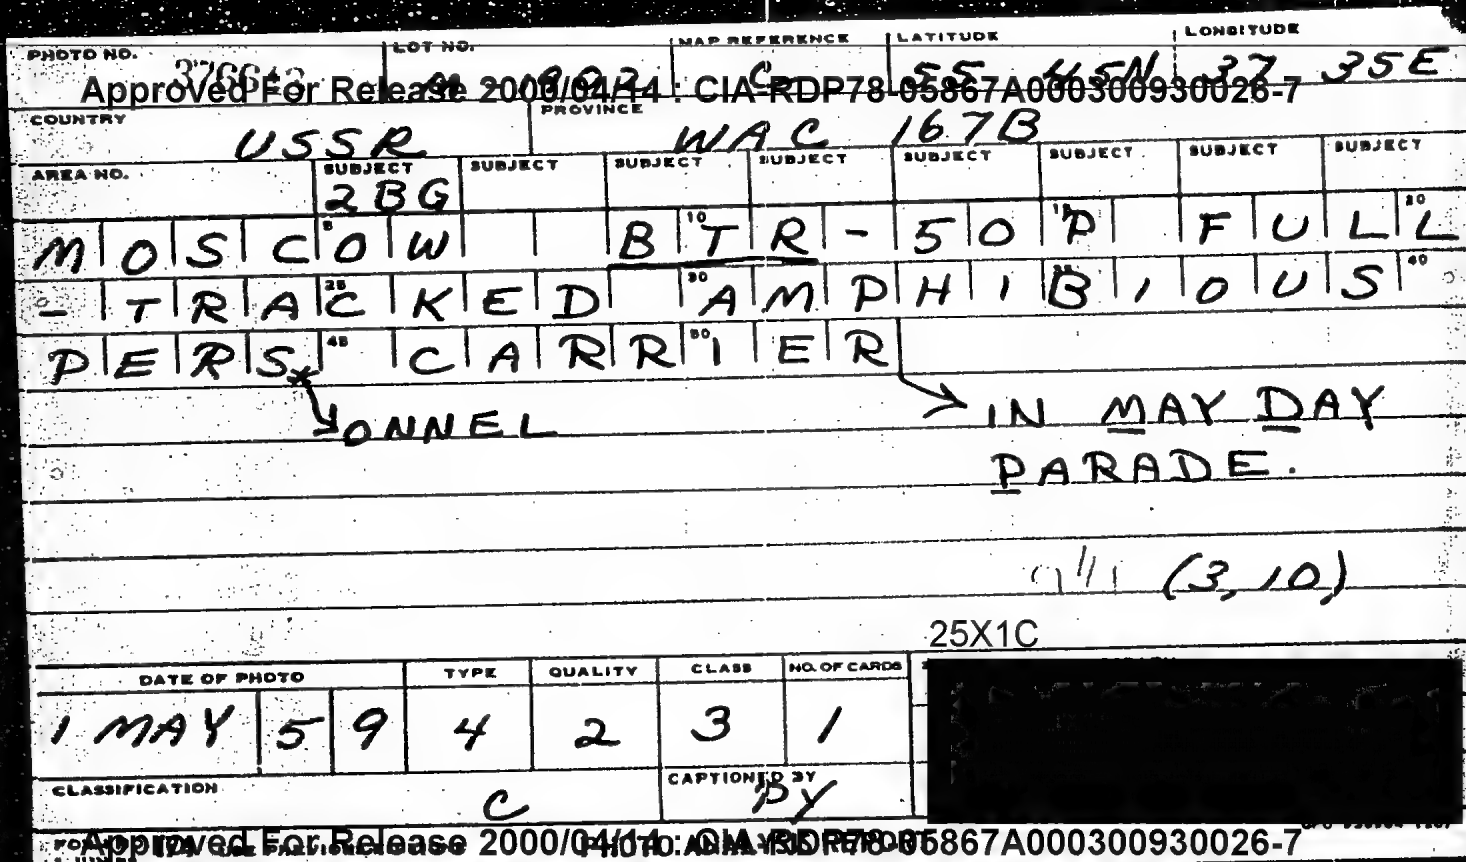 PHOTO NO. LOT NO. MAP REFERENCE LATITUDE LONGITUDE
C 55 45N 37 35E
Approved For Release 2000/04/14 : CIA-RDP78-05867A000300930026-7
COUNTRY USSR PROVINCE WAC 167B
AREA NO. SUBJECT SUBJECT SUBJECT SUBJECT SUBJECT SUBJECT SUBJECT SUBJECT
2BG
MOSCOW BTR-50P FULL
-TRACKED AMPHIBIOUS
PERS CARRIER
ONNEL
IN MAY DAY
PARADE.
(3,10)
25X1C
DATE OF PHOTO TYPE QUALITY CLASS NO. OF CARDS
1 MAY 59 4 2 3 1
CLASSIFICATION C CAPTIONED BY
Approved For Release 2000/04/14 : CIA-RDP78-05867A000300930026-7